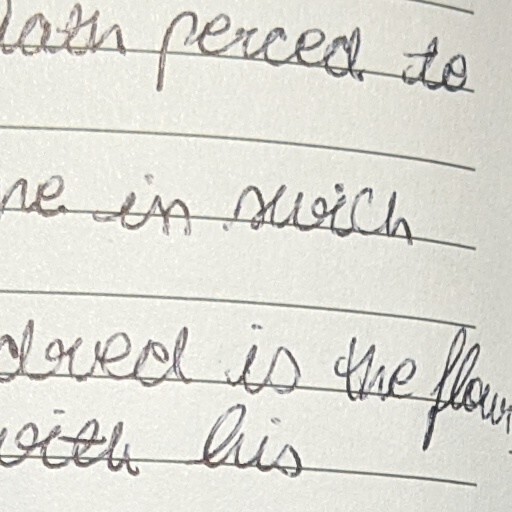 hath perced to
ne in swich
dred is the flour
with his